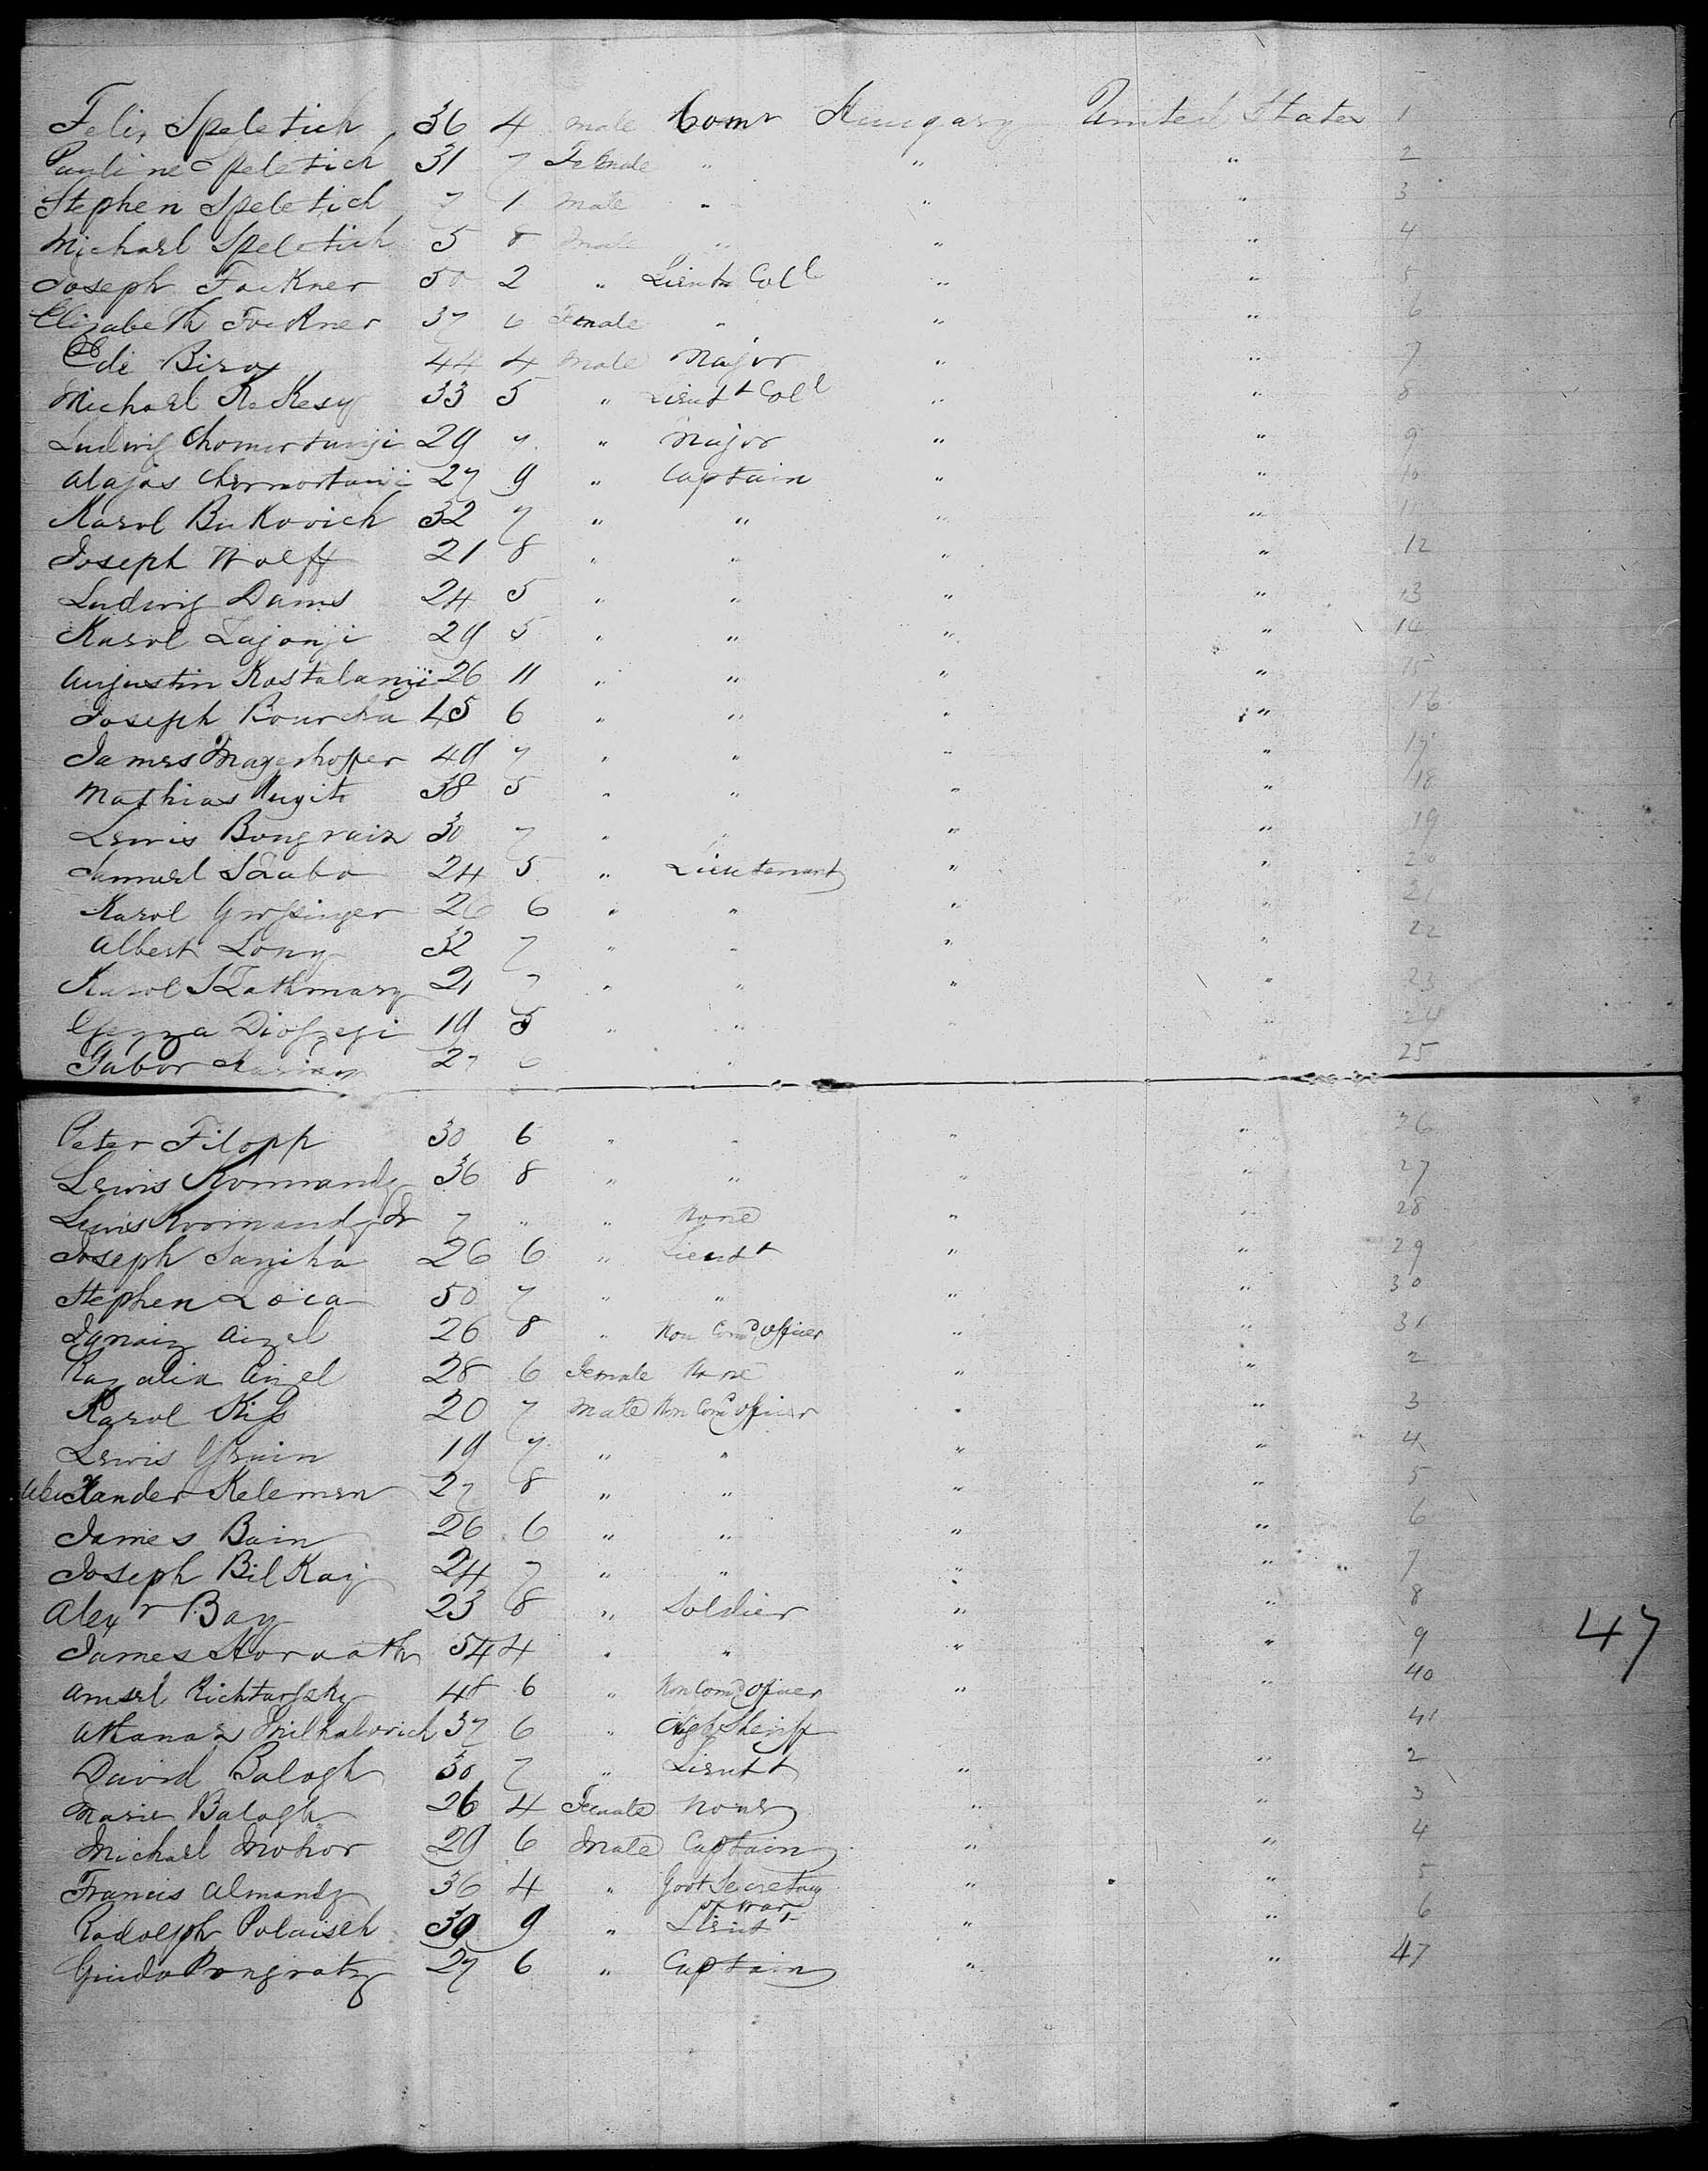 Felix Speletich 36 4 male Comr Hungary United States 1
Pauline Speletich 31 7 Female " " " 2
Stephen Speletich 7 1 male " " " 3
Michael Speletich 5 8 male " " " 4
Joseph Fockner 50 2 " Lieut Coll " " 5
Elizabeth Fockner 37 6 Female " " " 6
Ede Biroy 44 4 male Major " " 7
Michael KeKesy 33 5 " Lieutt Coll " " 8
Ludwig 29 7 " Major " " 9
Alajos 27 9 " Captain " " 10
Karol BuKovich 32 7 " " " " 11
Joseph Wolff 21 8 " " " " 12
Ludwig Dams 24 5 " " " " 13
Karol Zajonji 29 5 " " " " 14
Augustin Kostalanyii 26 11 " " " " 15
Joseph 45 6 " " " " 16
James Mayerhoffer 49 7 " " " " 17
Mathias 38 5 " " " " 18
Lewis 30 7 " " " " 19
Samuel Szabo 24 5 " Lieutenant " " 20
Karol Grossinger 26 6 " " " " 21
Albert Long 32 7 " " " " 22
Karol Szathmary 21 7 " " " " 23
Diossegi 19 5 " " " " 24
Gabor 27 6 " " 25
Peter Filopp 30 6 " " " " 26
Lewis Kormandy 36 8 " " " " 27
Lewis Kormandy Jr 7 " " None " " 28
Joseph Sanjika 26 6 " Lieutt " " 29
Stephen Loca 50 7 " " " " 30
Ignaiz Aizel 26 8 " Non Comd Officer " " 31
Rozalia Aizel 28 6 Female None " " 2
Karol Kiss 20 7 male Non Comd Officer " " 3
Lewis 19 7 " " " " 4
Alexander Kelemen 27 8 " " " " 5
James Bain 26 6 " " " " 6
Joseph BilKay 24 7 " " " " 7
Alexr Bay 23 8 " Soldier " " 8
James Horvath 54 4 " " " " 9 47
Amsel Richtarszky 48 6 " Non Comd Officer " " 40
Athanaz Milhalovich 37 6 " High Sheriff 41
David Balogh 30 7 " Lieutt " " 2
Marie Balogh 26 4 Female None " " 3
Michael Mohor 29 6 Male Captain " " 4
Francis Almandy 36 4 " Govt Secretary " " 5
of War
Rodolph Polaisch 39 9 " Lieutt " " 6
Guido Pongratz 27 6 " Captain " " 47